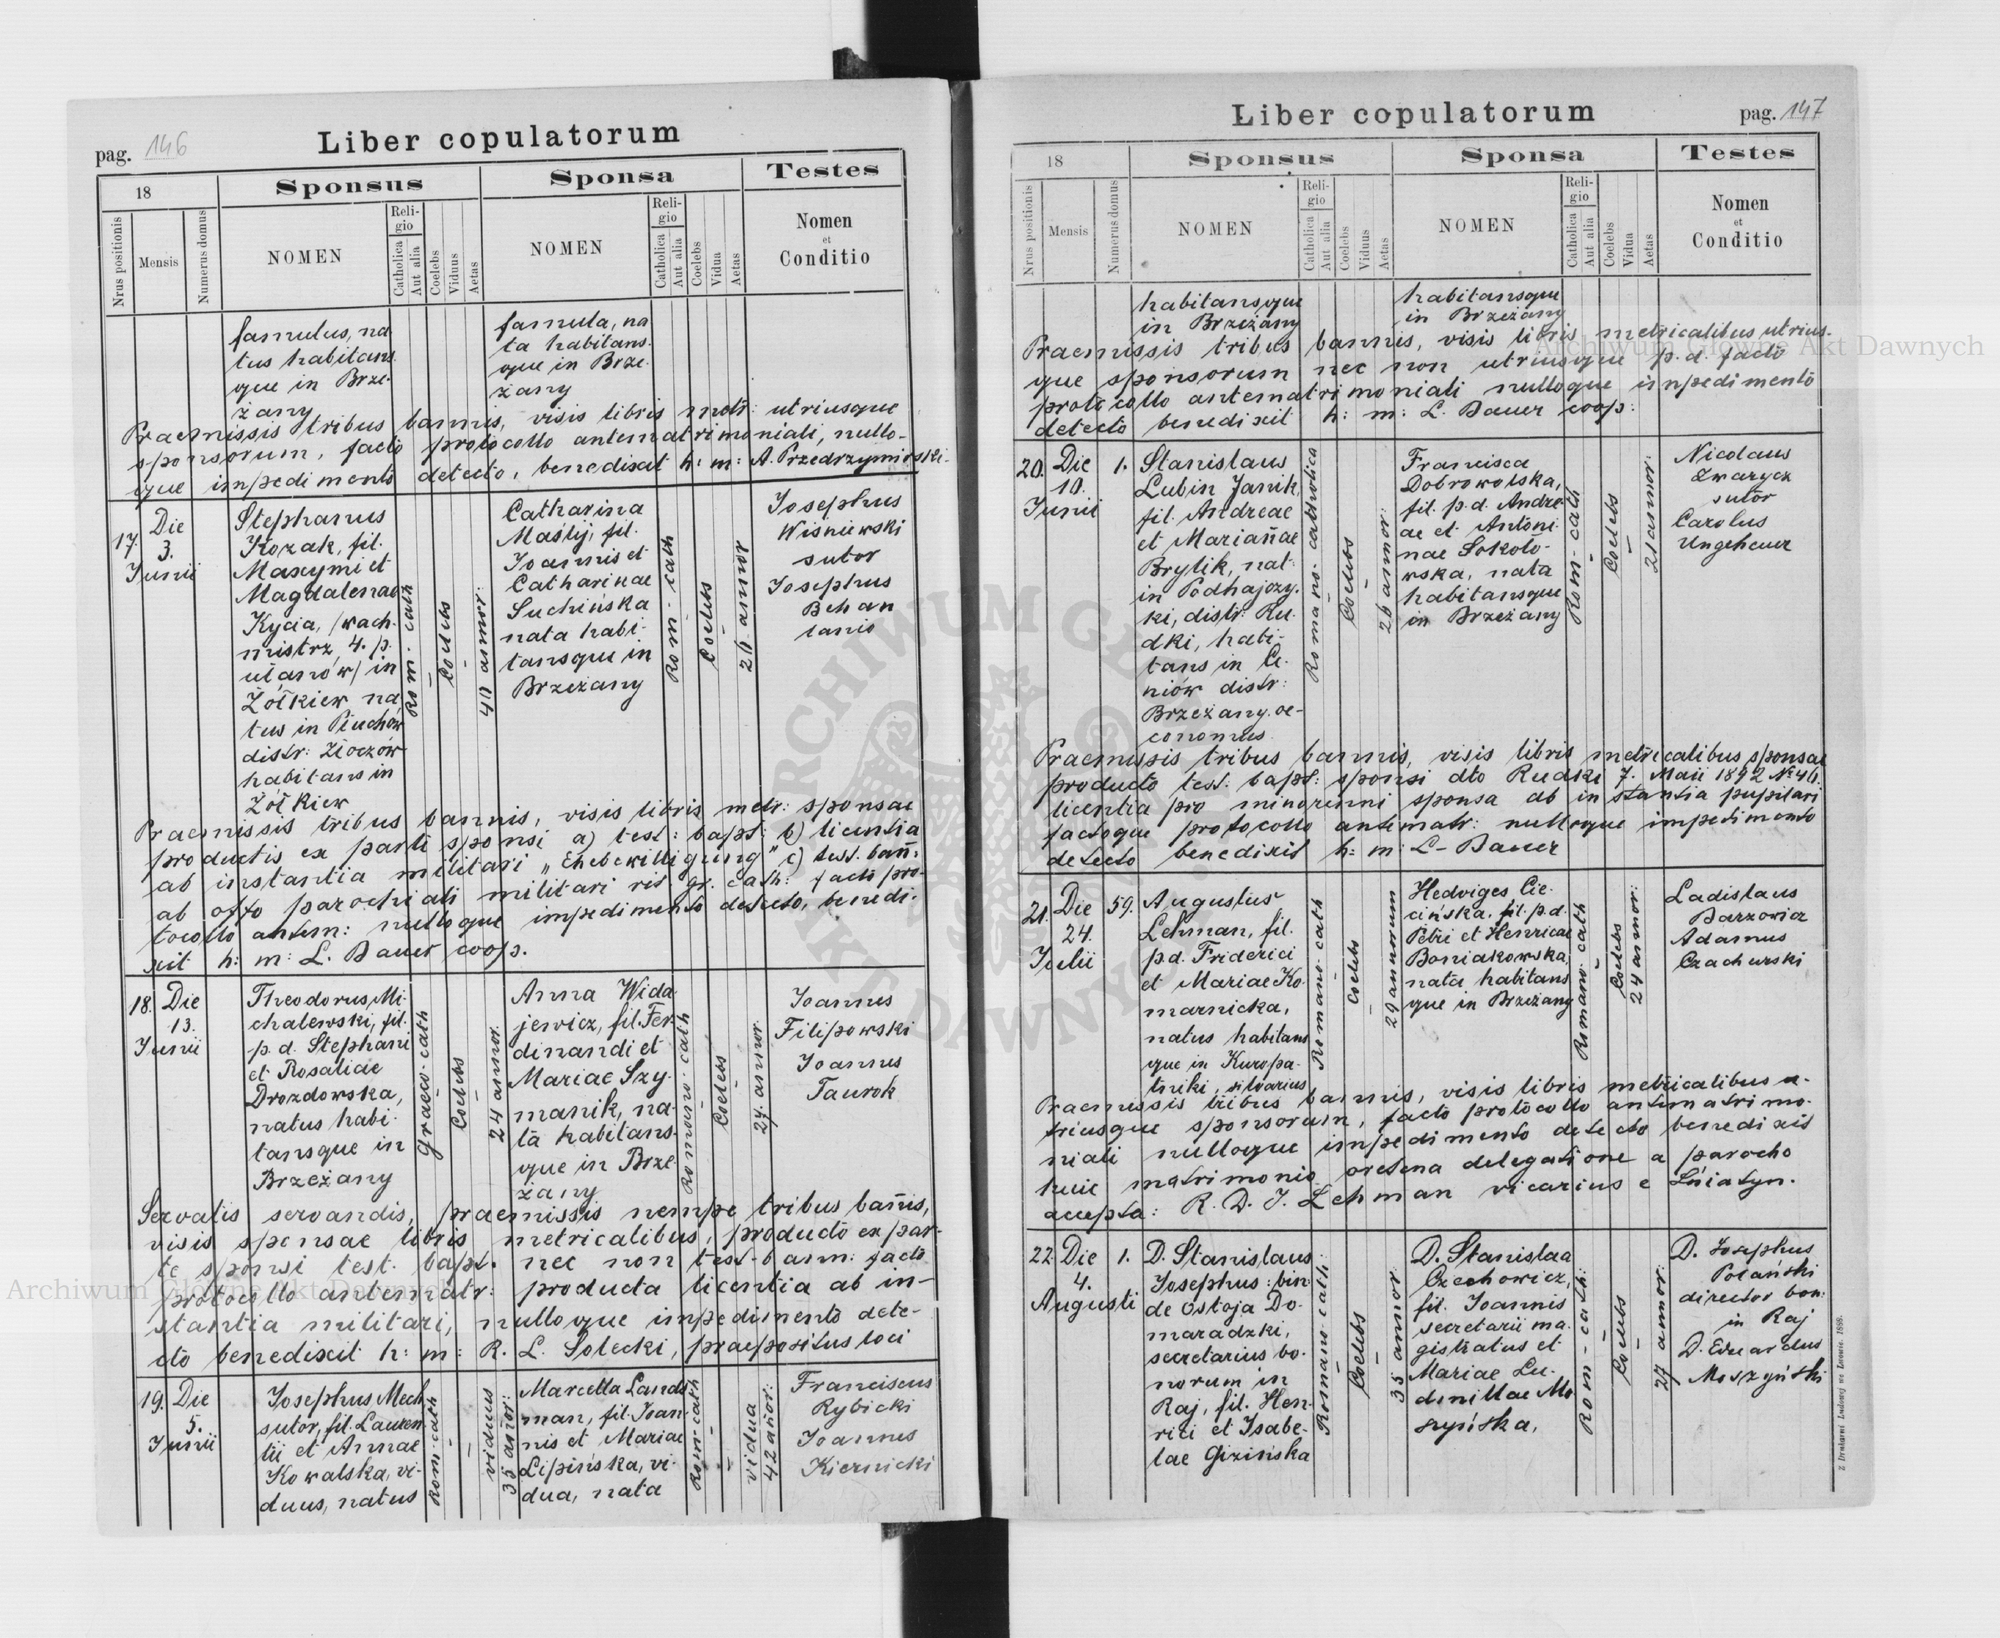 pag. 146
Liber copulatorum
18
Sponsus
Sponsa
Testes
Nrus positionis
Mensis
Numerus domus
NOMEN
Religio
Catholica
Aut alia
Coelebs
Viduus
Aetas
NOMEN
Religio
Catholica
Aut alia
Coelebs
Vidua
Aetas
Nomen
et
Conditio
famulus, na
tus habitans
que in Brze-
żany
famula, na
ta habitans
que in Brze-
żany
Praemissis tribus bannis, visis libris metr: utriusque
sponsorum, facto protocollo antematrimoniali, nullo-
que impedimento detecto, benedixit h: m: A. Przedrzymirski.
17. Die
3.
Junii
Stephanus
Kozak, fil.
Maxymi et
Magdalenae
Kycia, (wach-
mistrz 4. p.
ułanów) in
Żółkiew na
tus in Pluchów
distr: Złoczów
habitans in
Żółkiew
Rom. cath
Coelebs
40 annor:
Catharina
Maślij, fil.
Joannis et
Catharinae
Suchińska
nata habi-
tansque in
Brzeżany
Rom- cath
Coelebs
26 annor
Josephus
Wiśniewski
sutor
Josephus
Behan
lanio
Praemissis tribus bannis, visis libris metr: sponsae
productis ex parti sponsi a) test: bapt: b) licentia
ab instantia militari „Ehebewilligung" c) test. bañ:
ab offo parochiali militari rit. gr. cath: facto pro-
tocollo antem: nulloque impedimento detecto, benedi-
xit h: m: L. Bauer coop.
18. Die
13.
Junii
Theodorus Mi-
chalewski, fil.
p. d. Stephani
et Rosaliae
Drozdowska,
natus habi-
tansque in
Brzeżany
Graeco-cath
Coelebs
24 annor.
Anna Wida
jewicz, fil. Fer-
dinandi et
Mariae Szy-
manik, na-
ta habitans-
que in Brze-
żany
Romano-cath
Coelebs
27 annor.
Joannes
Filipowski
Joannes
Taurok
Servatis servandis, praemissis nempe tribus bañis,
visis sponsae libris metricalibus, producto ex par-
te sponsi test. bapt. nec non test. bann: facto
protocollo antematr: producta licentia ab in-
stantia militari, nulloque impedimento dete-
cto benedixit h: m: R. L. Solecki, praepositus loci
19. Die
5.
Junii
Josephus Mech
sutor, fil. Lauren
tii et Annae
Kowalska, vi-
duus, natus
Rom-cath
viduus
35 añor:
Marcella Land
man, fil. Joan-
nis et Mariae
Lipińska, vi-
dua, nata
Rom-cath
vidua
42 añor:
Franciscus
Rybicki
Joannes
Kiernicki
Liber copulatorum
pag. 147
18
Sponsus
Sponsa
Testes
Nrus positionis
Mensis
Numerus domus
NOMEN
Religio
Catholica
Aut alia
Coelebs
Viduus
Aetas
NOMEN
Religio
Catholica
Aut alia
Coelebs
Vidua
Aetas
Nomen
et
Conditio
habitansque
in Brzeżany
habitansque
in Brzeżany
Praemissis tribus bannis, visis libris metricalibus utrius-
que sponsorum nec non utriusque p. d. facto
protocollo antematrimoniali nulloque impedimento
detecto benedixit h: m: L. Bauer coop:
20. Die
10.
Junii
1.
Stanislaus
Lubin Janik,
fil. Andreae
et Mariañae
Brylik, nat-
in Podhajczy-
ki, distr: Ru-
dki, habi-
tans in Ce-
niów distr:
Brzeżany. oe-
conomus
Romano-catholica
Coelebs
26 annor:
Francisca
Dobrowolska,
fil. p. d. Andre-
ae et Antoni
nae Sokoło-
wska, nata
habitansque
in Brzeżany
Rom-cath
Coelebs
21 annor.
Nicolaus
Zwarycz
sutor
Carolus
Ungeheuer
Praemissis tribus bannis, visis libris metricalibus sponsae
producto test. bapt: sponsi dto Rudki 7. Maii 1892 № 46.
licentia pro minorenni sponsa ab instantia pupilari
factoque protocollo antematr: nulloque impedimento
detecto benedixit h: m: L- Bauer
21. Die
24.
Julii
59.
Augustus
Lehman, fil.
p. d. Friderici
et Mariae Ko-
marnicka,
natus habitans
que in Kuropa-
tniki, silvarius
Romano-cath
Coelebs
29 annorum
Hedviges Cie-
cińska, fil. p. d.
Petri et Henricae
Boniakowska,
nata habitans
que in Brzeżany
Romano-cath
Coelebs
24 annor:
Ladislaus
Barzowicz
Adamus
Czacherski
Praemissis tribus bannis, visis libris metricalibus u-
triusque sponsorum, facto protocollo antematrimo-
niali nulloque impedimento detecto benedixit
huic matrimonio oretena delegatione a parocho
accepta: R. D. J. Lehman vicarius e Śniatyn.
22. Die
4.
Augusti
1.
D. Stanislaus
Josephus: bin
de Ostoja Do-
maradzki,
secretarius bo-
norum in
Raj, fil. Hen-
rici et Isabe-
lae Gizińska
Romano-cath:
Coelebs
35 annor
D. Stanislaa
Czechowicz,
fil. Joannis
secretarii ma-
gistratus et
Mariae Lu-
dmillae Mo-
szyńska,
Rom-cath:
Coelebs
27 annor:
D. Josephus
Polański
director bon:
in Raj
D. Eduardus
Moszyński
Z Drukarni Ludowej we Lwowie. 1888.
Archiwum Główne Akt Dawnych
Archiwum Główne Akt Dawnych